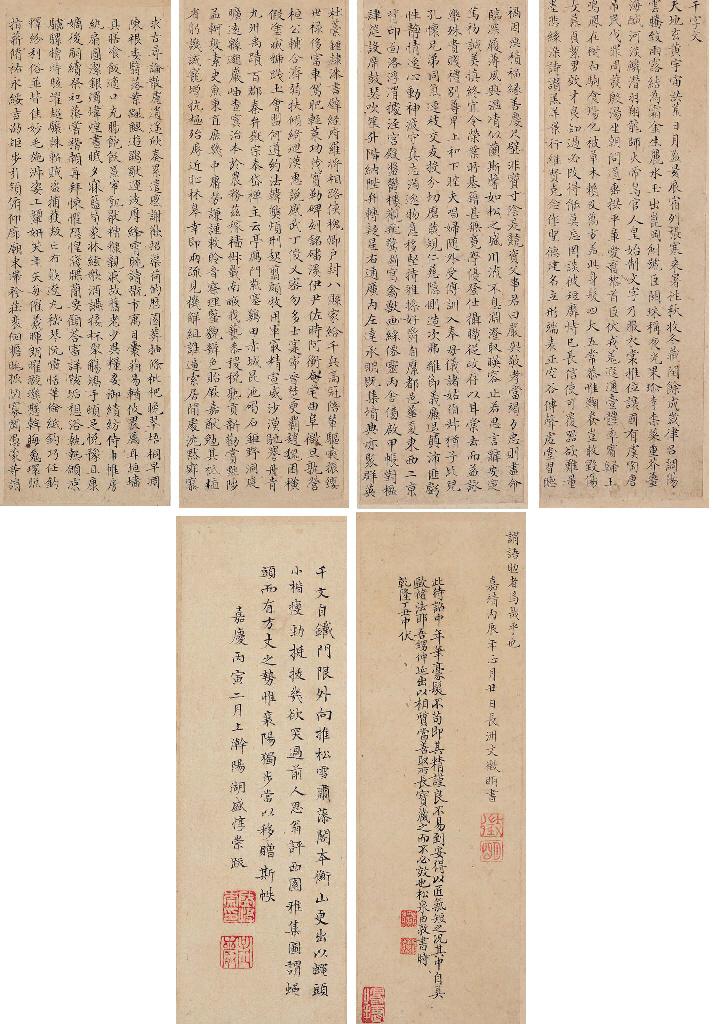 千字文
天地玄黃宇宙洪荒日月盈昃辰宿列張寒來暑往秋收冬藏閏餘成歲律呂調陽
雲騰致雨露結為霜金生麗水玉出崑岡劍號巨闕珠稱夜光果珍李柰菜重芥薑
海鹹河淡鱗潛羽翔龍師火帝鳥官人皇始制文字乃服衣裳推位讓國有虞陶唐
弔民伐罪周發殷湯坐朝問道垂拱平章愛育黎首臣伏戎羌遐邇壹體率賓歸王
鳴鳳在樹白駒食場化被草木賴及萬方蓋此身髮四大五常恭惟鞠養豈敢毀傷
女慕貞絜男效才良知過必改得能莫忘罔談彼短靡恃己長信使可覆器欲難量
墨悲絲染詩讚羔羊景行維賢克念作聖德建名立形端表正空谷傳聲虛堂習聽
禍因惡積福緣善慶尺璧非寶寸陰是競資父事君曰嚴與敬孝當竭力忠則盡命
臨深履薄夙興溫凊似蘭斯馨如松之盛川流不息淵澄取映容止若思言辭安定
篤初誠美慎終宜令榮業所基籍甚無竟學優登仕攝職從政存以甘棠去而益詠
樂殊貴賤禮別尊卑上和下睦夫唱婦隨外受傅訓入奉母儀諸姑伯叔猶子比兒
孔懷兄弟同氣連枝交友投分切磨箴規仁慈隱惻造次弗離節義廉退顛沛匪虧
性靜情逸心動神疲守真志滿逐物意移堅持雅操好爵自縻都邑華夏東西二京
背邙面洛浮渭據涇宮殿盤鬱樓觀飛驚圖寫禽獸畫綵僊靈丙舍傍啟甲帳對楹
肆筵設席鼓瑟吹笙升階納陛弁轉疑星右通廣內左達承明既集墳典亦聚群英
杜稾鍾隸漆書壁經府羅將相路俠槐卿戶封八縣家給千兵高冠陪輦驅轂振纓
世祿侈富車駕肥輕策功茂實勒碑刻銘磻溪伊尹佐時阿衡奄宅曲阜微旦孰營
桓公匡合濟弱扶傾綺迴漢惠說感武丁俊乂密勿多士寔寧晉楚更霸趙魏困橫
假途滅虢踐土會盟何遵約法韓弊煩刑起翦頗牧用軍最精宣威沙漠馳譽丹青
九州禹跡百郡秦并嶽宗泰岱禪主云亭鴈門紫塞雞田赤城昆池碣石鉅野洞庭
曠遠緜邈巖岫杳冥治本於農務茲稼穡俶載南畝我藝黍稷稅熟貢新勸賞黜陟
孟軻敦素史魚秉直庶幾中庸勞謙謹敕聆音察理鑑貌辨色貽厥嘉猷勉其祗植
省躬譏誡寵增抗極殆辱近恥林皋幸即兩疏見機解組誰逼索居閒處沉默寂寥
求古尋論散慮逍遙欣奏累遣慼謝歡招渠荷的歷園莽抽條枇杷晚翠梧桐早凋
陳根委翳落葉飄颻遊鵾獨運凌摩絳霄耽讀翫市寓目囊箱易輶攸畏屬耳垣牆
具膳飡飯適口充腸飽飫烹宰飢厭糟糠親戚故舊老少異糧妾御績紡侍巾帷房
紈扇圓潔銀燭煒煌晝眠夕寐藍筍象牀絃歌酒讌接杯舉觴矯手頓足悅豫且康
嫡後嗣續祭祀蒸嘗稽顙再拜悚懼恐惶牋牒簡要顧答審詳骸垢想浴執熱願涼
驢騾犢特駭躍超驤誅斬賊盜捕獲叛亡布射遼丸嵇琴阮嘯恬筆倫紙鈞巧任釣
釋紛利俗並皆佳妙毛施淑姿工顰妍笑年矢每催曦暉朗耀璇璣懸斡晦魄環照
指薪修祜永綏吉劭矩步引領俯仰廊廟束帶矜莊徘徊瞻眺孤陋寡聞愚蒙等誚
謂語助者焉哉乎也
嘉靖丙辰年正月廿日長洲文徵明書
徵明
此待詔中年筆豪髮不苟即其精謹良不易到安得以匠氣短之況其中自具
歐陽法耶吾甥偉延出以相質當善取所長寶藏之而不必效也松泉由敦書時
乾隆丁丑中伏
千文自鐵門限外向推松雪爾藻閣本衡山更出以蠅頭
小楷瘦勁挺拔幾欲突過前人思翁評西園雅集圖謂蠅
頭而有方丈之勢惟襄陽獨步當以移贈斯帙
嘉慶丙寅二月上澣陽湖盛惇崇跋